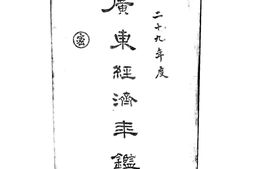 二十九年度
廣東經濟年鑑